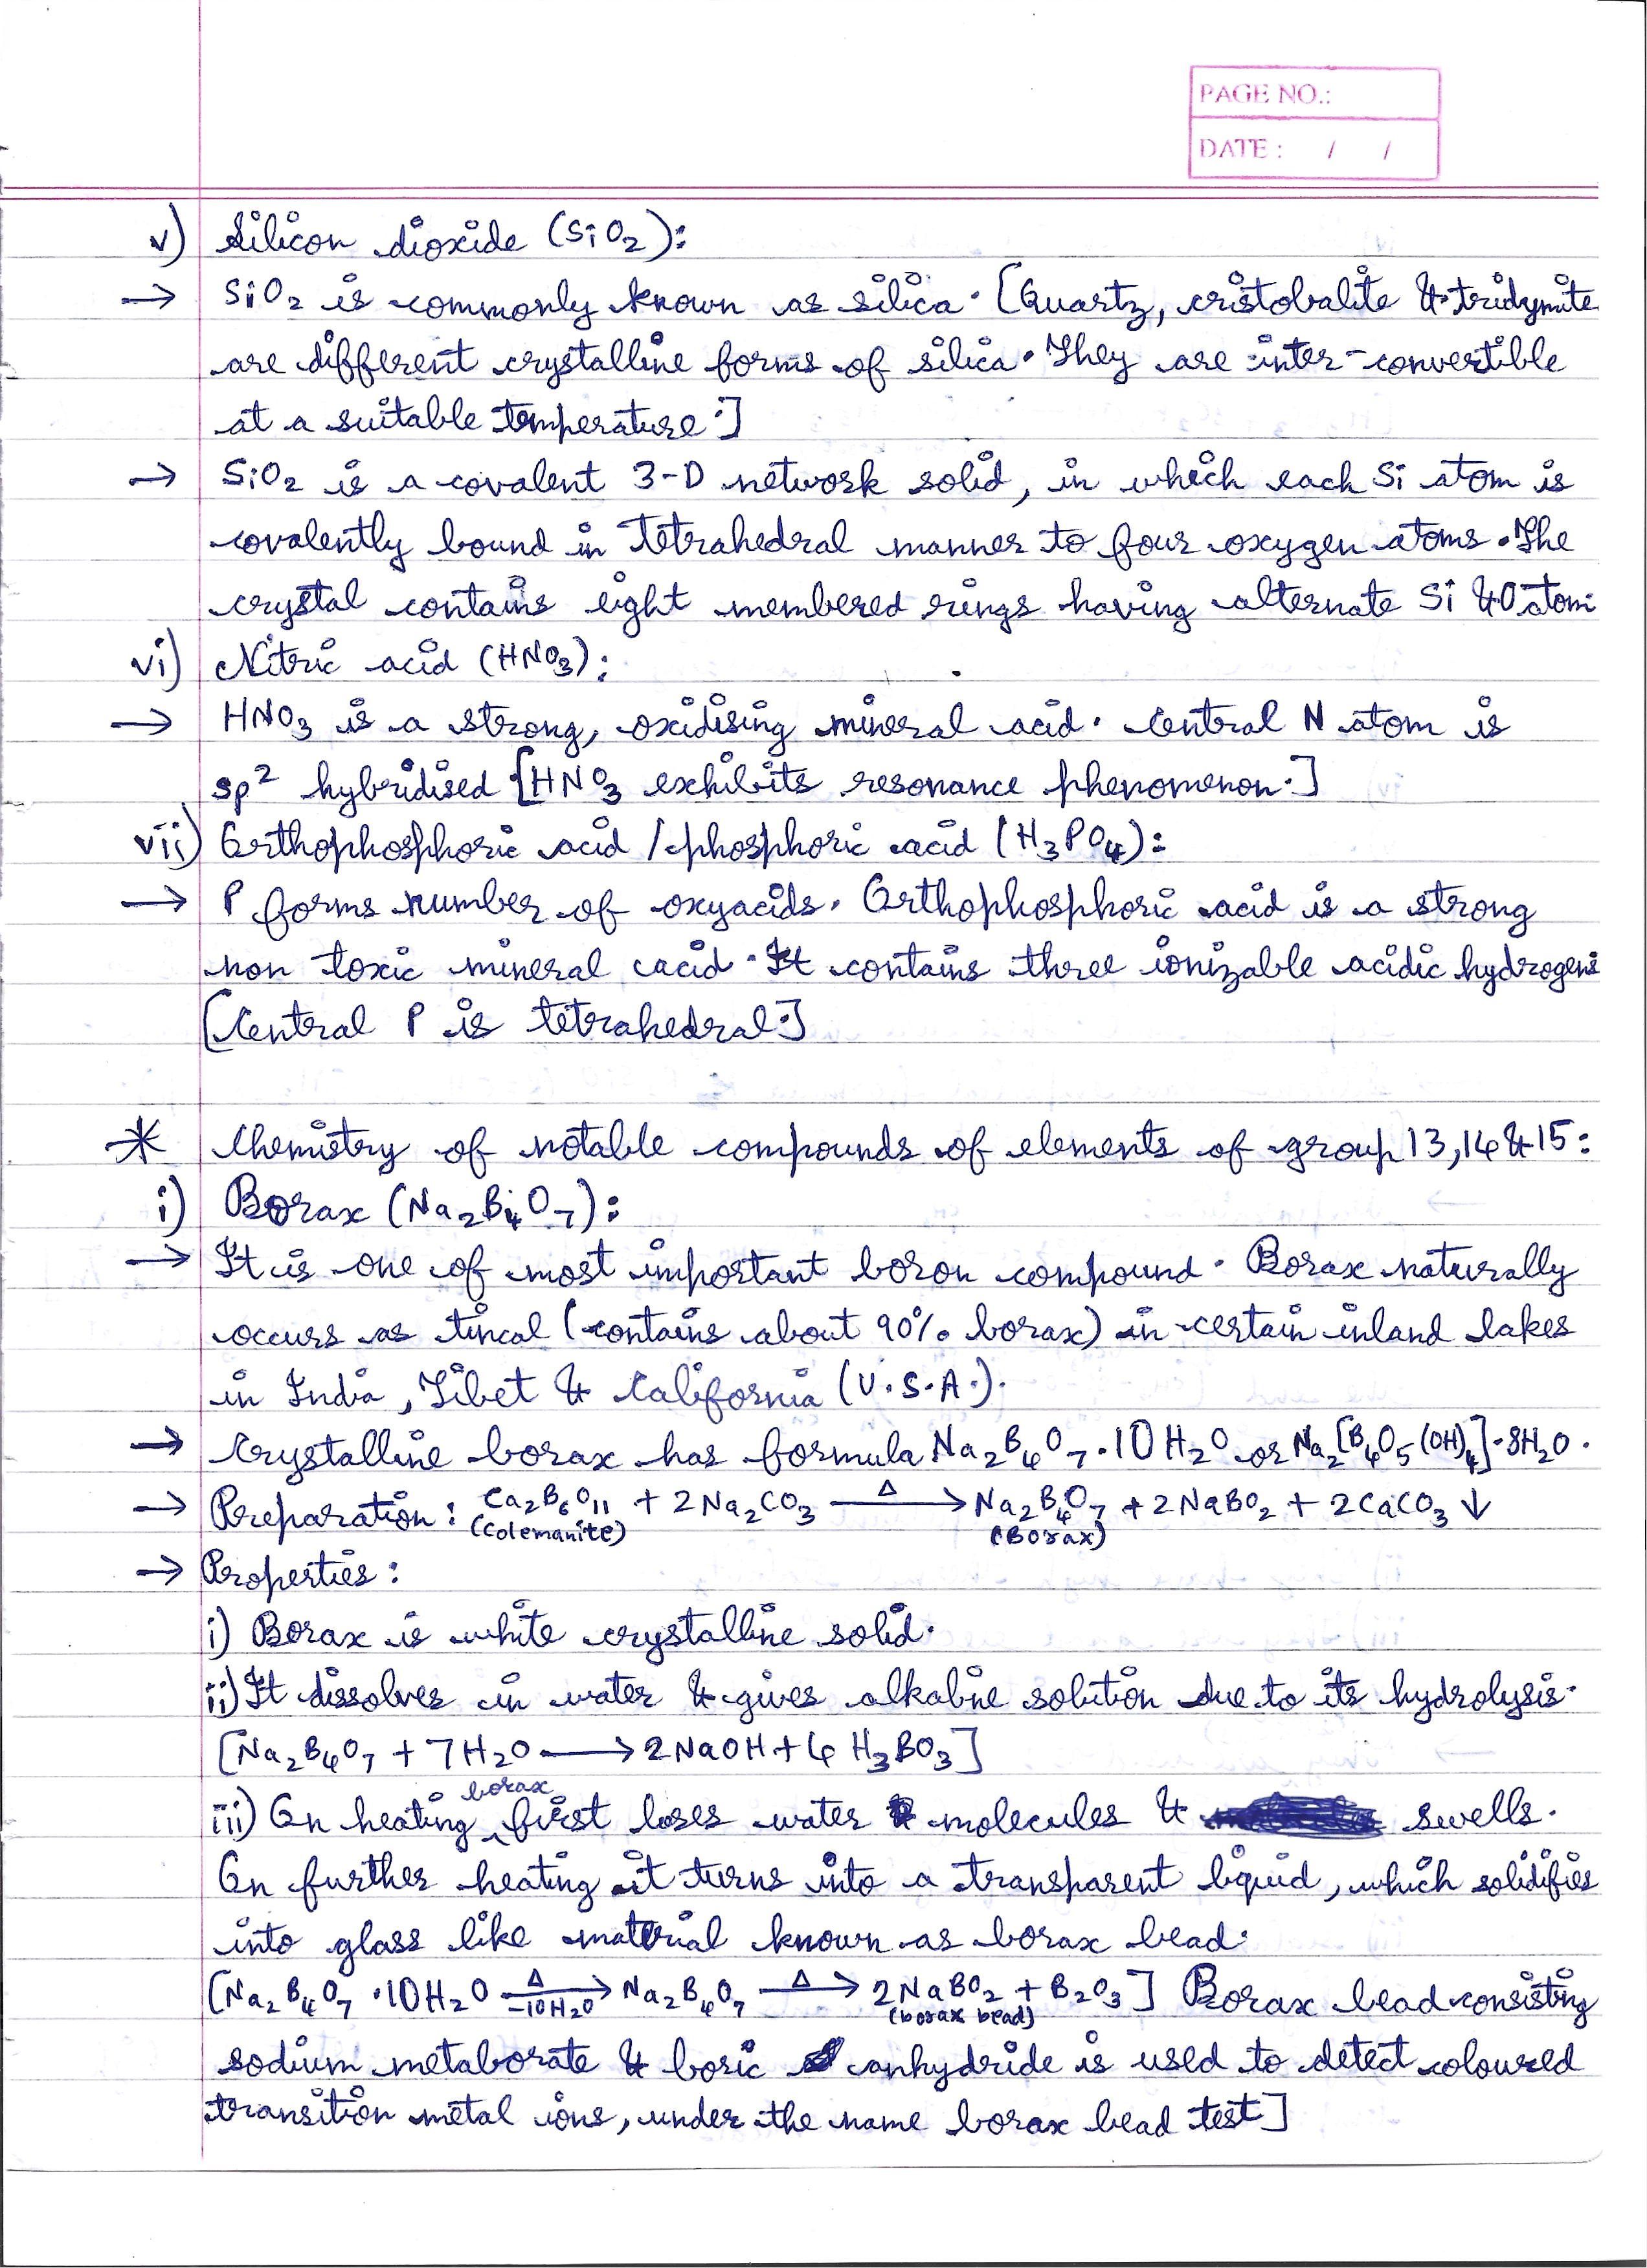 PAGE NO.:
DATE : / /
v) Silicon dioxide (SiO₂):
→ SiO₂ is commonly known as silica. [Quartz, cristobalite & tridymite
are different crystalline forms of silica. They are inter-convertible
at a suitable temperature.]
→ SiO₂ is a covalent 3-D network solid, in which each Si atom is
covalently bound in tetrahedral manner to four oxygen atoms. The
crystal contains eight membered rings having alternate Si & O atom
vi) Nitric acid (HNO₃):
→ HNO₃ is a strong, oxidising mineral acid. Central N atom is
sp² hybridised [HNO₃ exhibits resonance phenomenon.]
vii) Orthophosphoric acid / phosphoric acid (H₃PO₄):
→ P forms number of oxyacids. Orthophosphoric acid is a strong
non toxic mineral acid. It contains three ionizable acidic hydrogens
[Central P is tetrahedral.]
* Chemistry of notable compounds of elements of group 13, 14 & 15:
i) Borax (Na₂B₄O₇):
→ It is one of most important boron compound. Borax naturally
occurs as tincal (contains about 90% borax) in certain inland lakes
in India, Tibet & California (U.S.A.).
→ Crystalline borax has formula Na₂B₄O₇.10H₂O or Na₂[B₄O₅(OH)₄].8H₂O.
→ Preparation : Ca₂B₆O₁₁ + 2Na₂CO₃ —Δ→ Na₂B₄O₇ + 2NaBO₂ + 2CaCO₃ ↓
(Colemanite) (Borax)
→ Properties :
i) Borax is white crystalline solid.
ii) It dissolves in water & gives alkaline solution due to its hydrolysis.
[Na₂B₄O₇ + 7H₂O ⟶ 2NaOH + 4H₃BO₃]
iii) On heating borax first loses water molecules & swells.
On further heating it turns into a transparent liquid, which solidifies
into glass like material known as borax bead.
[Na₂B₄O₇.10H₂O —Δ/-10H₂O→ Na₂B₄O₇ —Δ→ 2NaBO₂ + B₂O₃] Borax bead consisting
(borax bead)
sodium metaborate & boric anhydride is used to detect coloured
transition metal ions, under the name borax bead test]